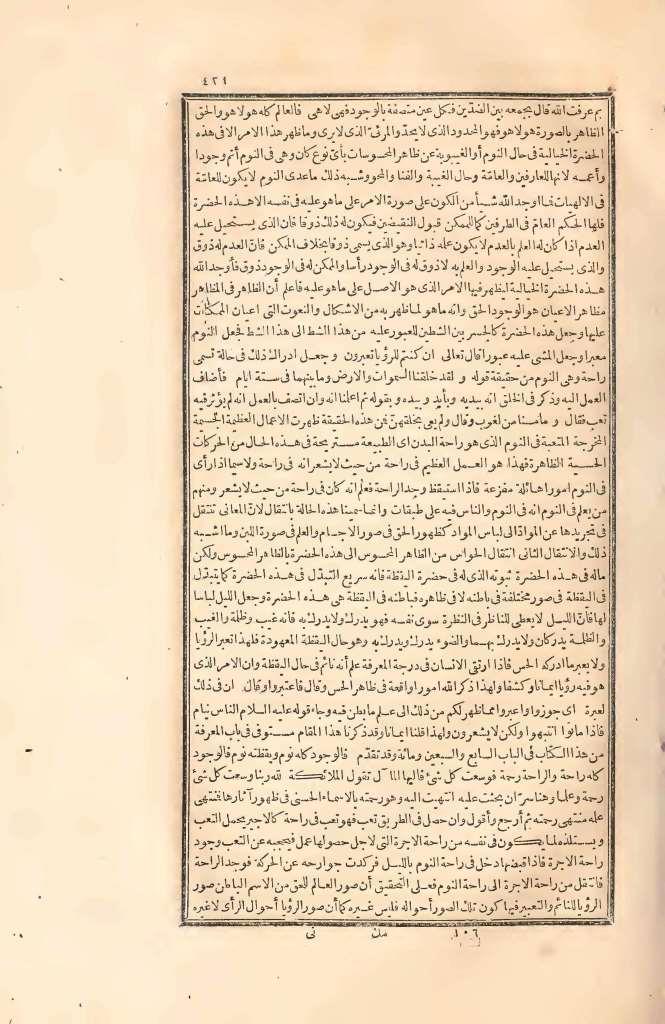 ٤٢١
بم عرفت الله قال بجمعه بين الضدّين فكل عين متصفة بالوجود فهى لا هى فالعالم كله هو لا هو والحق
الظاهر بالصورة هو لا هو فهو المحدود الذى لا يحدّ والمرئىّ الذى لا يرى وما ظهر هذا الامر الا فى هذه
الحضرة الخيالية فى حال النوم أو الغيبوبة عن ظاهر المحسوسات بأىّ نوع كان وهى فى النوم أتم وجودا
وأعمه لانها للعارفين والعامّة وحال الغيبة والفنا والمحو وشبه ذلك ما عدى النوم لا يكون للعامّة
فى الالهيات فما اوجد الله شيأ من الكون على صورة الامر على ما هو عليه فى نفسه الا هذه الحضرة
فلها الحكيم العامّ فى الطرفين كما للممكن قبول النقيضين فيكون له ذلك ذوقا فان الذى يستحيل عليه
العدم اذا كان له العلم بالعدم لا يكون علمه ذاتيا وهو الذى يسمى ذوقا بخلاف الممكن فانّ العدم له ذوق
والذى يستحيل عليه الوجود والعلم به لا ذوق له فى الوجود رأسا والممكن له فى الوجود ذوق فأوجد الله
هذه الحضرة الخيالية ليظهر فيها الامر الذى هو الاصل على ما هو عليه فاعلم أن الظاهر فى المظاهر
مظاهر الاعيان هو الوجود الحق وانه ما هو لما ظهر به من الاشكال والنعوت التى اعيان الممكنات
عليها وجعل هذه الحضرة كالجسر بين الشطين للعبور عليه من هذا الشط الى هذا الشط فجعل النوم
معبرا وجعل المشى عليه عبورا قال تعالى ان كنتم للرؤيا تعبرون وجعل ادراك ذلك فى حالة تسمى
راحة وهى النوم من حقيقة قوله ولقد خلقنا السموات والارض وما بينهما فى ستة ايام فأضاف
العمل اليه وذكر فى الخلق انه بيديه وبأيد وبيده وبقوله ثم اعلنا انه وان اتصف بالعمل انه لم يؤثر فيه
تعب فقال وما مسنا من لغوب وقال ولم يعى بخلقهنّ فمن هذه الحقيقة ظهرت الاعمال العظيمة الجسيمة
المخرجة المتعبة فى النوم الذى هو راحة البدن اى الطبيعة مستريحة فى هذه الحال من الحركات
الحسية الظاهرة فهذا هو العمل العظيم فى راحة من حيث لا يشعر انه فى راحة ولا سيما اذا رأى
فى النوم امورا هائلة مفزعة فاذا استيقظ وجد الراحة فعلم انه كان فى راحة من حيث لا يشعر ومنهم
من يعلم فى النوم انه فى النوم والناس فيه على طبقات وانما سمينا هذه الحالة بانتقال لانّ المعانى تنتقل
فى تجريدها عن الموادّ الى لباس المواد كظهور الحق فى صور الاجسام والعلم فى صورة اللبن وما اشبه
ذلك والانتقال الثانى انتقال الحواس من الظاهر المحسوس الى هذه الحضرة بالظاهر المحسوس ولكن
ماله فى هذه الحضرة ثبوته الذى له فى حضرة اليقظة فانه سريع التبدّل فى هذه الحضرة كما يتبدّل
فى اليقظة فى صور مختلفة فى باطنه لا فى ظاهره فباطنه فى اليقظة هى هذه الحضرة وجعل الليل لباسا
لها فانّ الليل لا يعطى للناظر فى النظرة سوى نفسه فهو يدرك ولا يدرك به فانه غيب وظلمة والغيب
والظلمة يدركان ولا يدرك بهما والضوء يدرك ويدرك به وهو حال اليقظة المعهودة فلهذا تعبر الرؤيا
ولا يعبر ما ادركه الحس فاذا ارتقى الانسان فى درجة المعرفة علم أنه نائم فى حال اليقظة وان الامر الذى
هو فيه رؤيا ايمانا وكشفا ولهذا ذكر الله امورا واقعة فى ظاهر الحس وقال فاعتبروا وقال ان فى ذلك
لعبرة اى جوزوا واعبروا مما ظهر لكم من ذلك الى علم ما بطن فيه وجاء قوله عليه السلام الناس نيام
فاذا ماتوا انتبهوا ولكن لا يشعرون ولهذا قلنا ايمانا وقد ذكرنا هذا المقام مستوفى فى باب المعرفة
من هذا الكتاب فى الباب السابع والسبعين ومائة وقد تقدّم فالوجود كله نوم ويقظته نوم فالوجود
كله راحة والراحة رحمة فوسعت كل شئ فاليها المآل تقول الملائكة لله ربنا وسعت كل شئ
رحمة وعلما وهنا سرّ ان بحثت عليه انتهيت اليه وهو رحمته بالاسماء الحسنى فى ظهور آثارها فمنتهى
علمه منتهى رحمته ثم أرجع وأقول وان حصل فى الطريق تعب فهو تعب فى راحة كالاجير يحمل التعب
ويستلذه لما يكون فى نفسه من راحة الاجرة التى لاجل حصولها عمل فيحجبه عن التعب وجود
راحة الاجرة فاذا قبضها دخل فى راحة النوم بالليل فركدت جوارحه عن الحركة فوجد الراحة
فانتقل من راحة الاجرة الى راحة النوم فعلى التحقيق أن صور العالم للحق من الاسم الباطن صور
الرؤيا للنائم والتعبير فيها كون تلك الصور أحواله فليس غيره كما أن صور الرؤيا أحوال الرأى لا غيره
١٠٦ مك نى